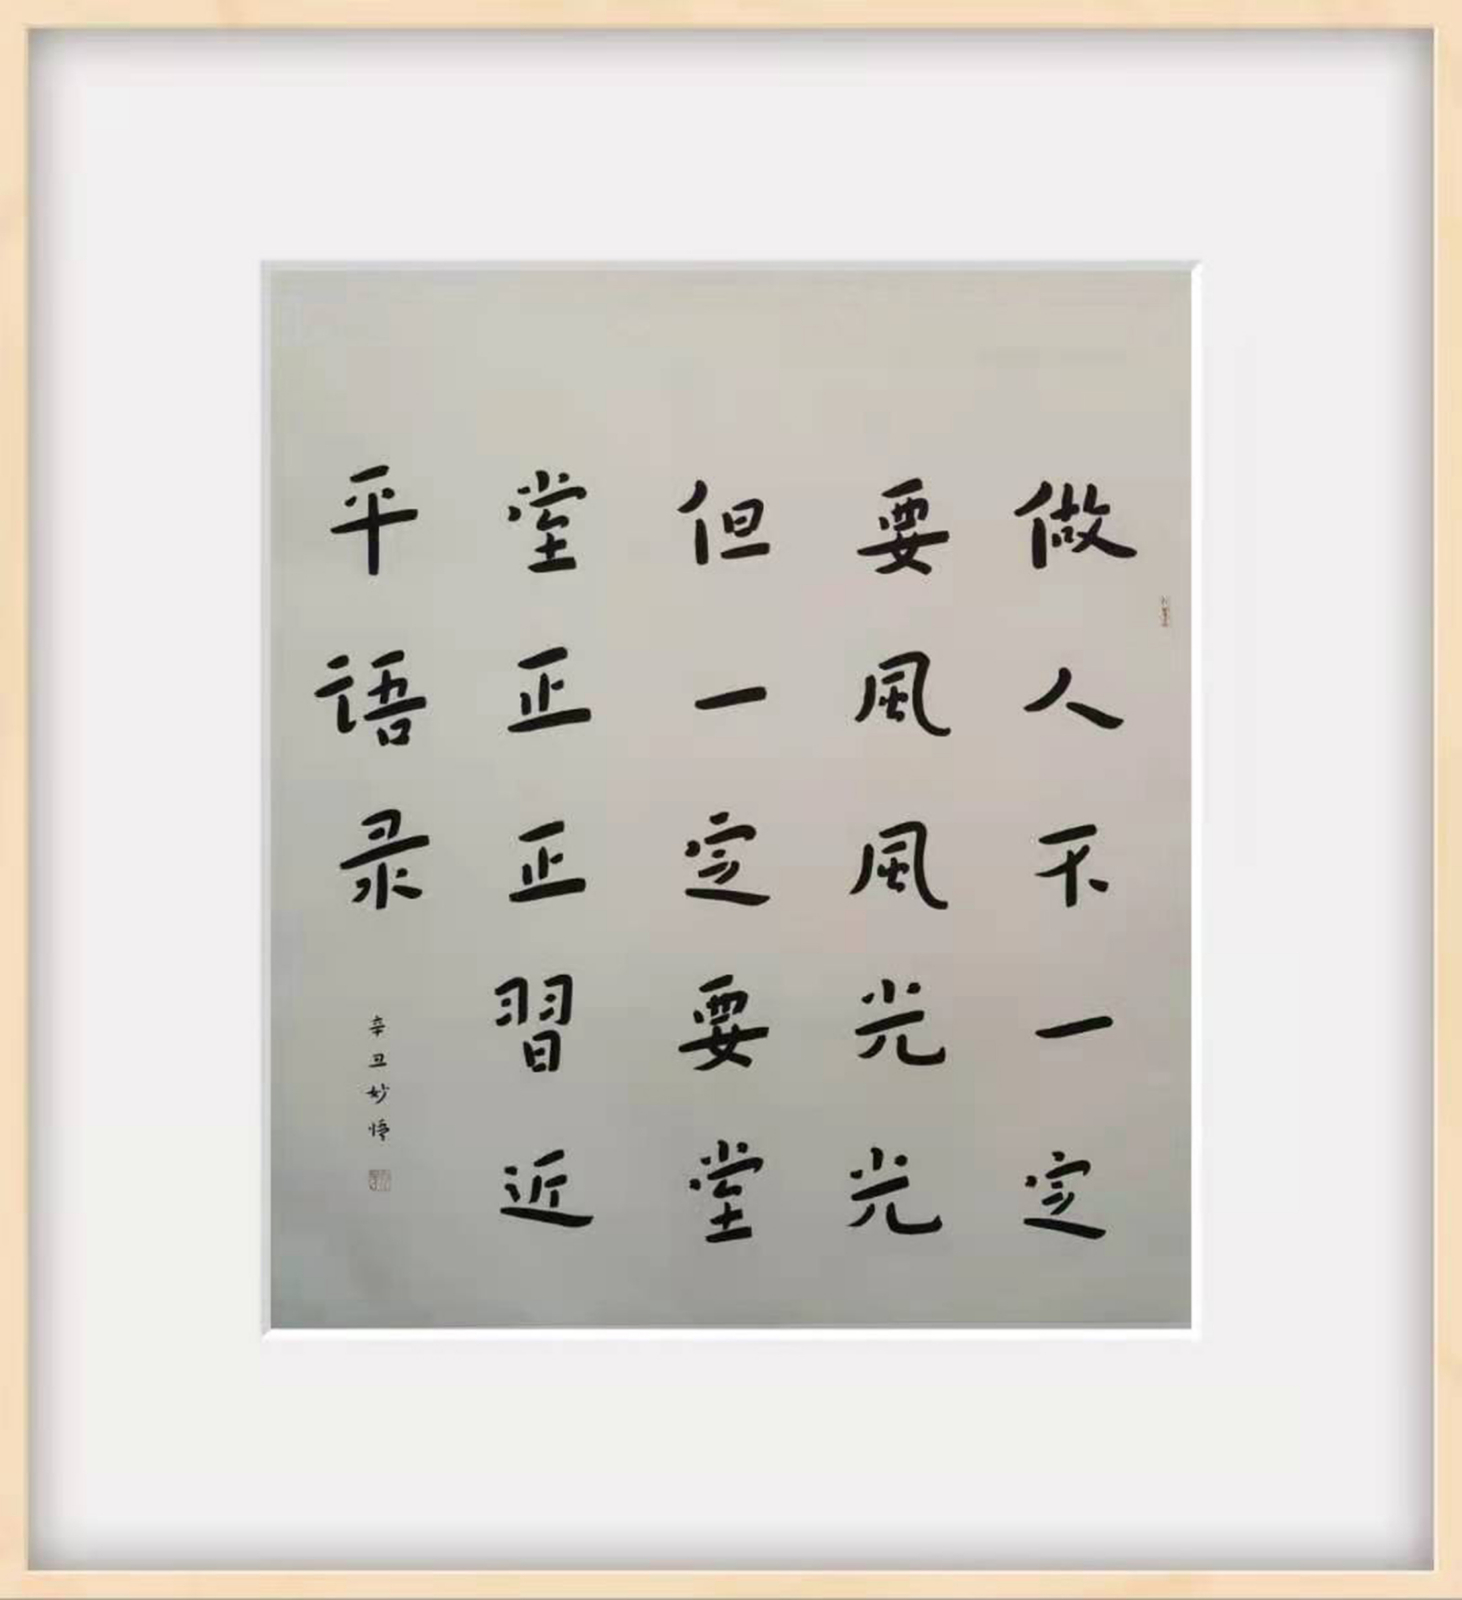 做人不一定
要風風光光
但一定要堂
堂正正習近
平語录
辛丑妙悟